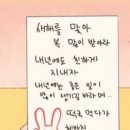 새해를 맞아
복 많이 받아라
내년에도 친하게
지내자
내년에는 좋은 일이
많이 생기길 바라며...
떡국 먹다가